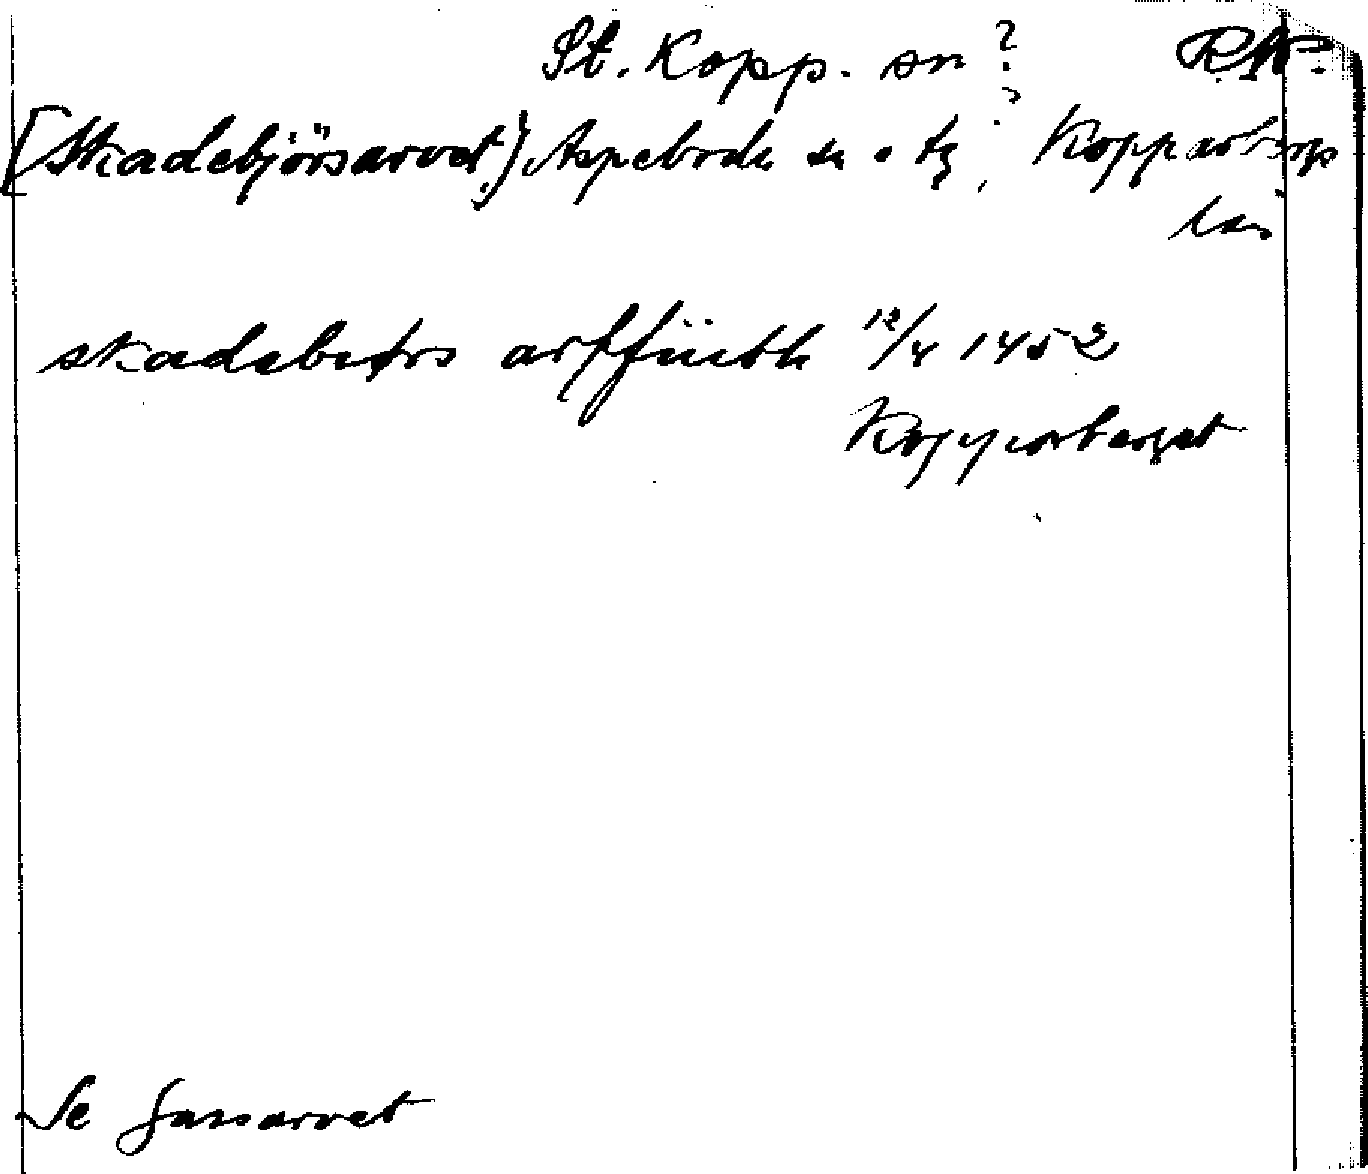 St. Kopp. sn ? RA.
[Skadebjörsarvet] Aspeboda sn o tg ? Kopparbergs
län
skadabiørs arffüith 12/4 1452
Kopparberget
Se Jansarvet